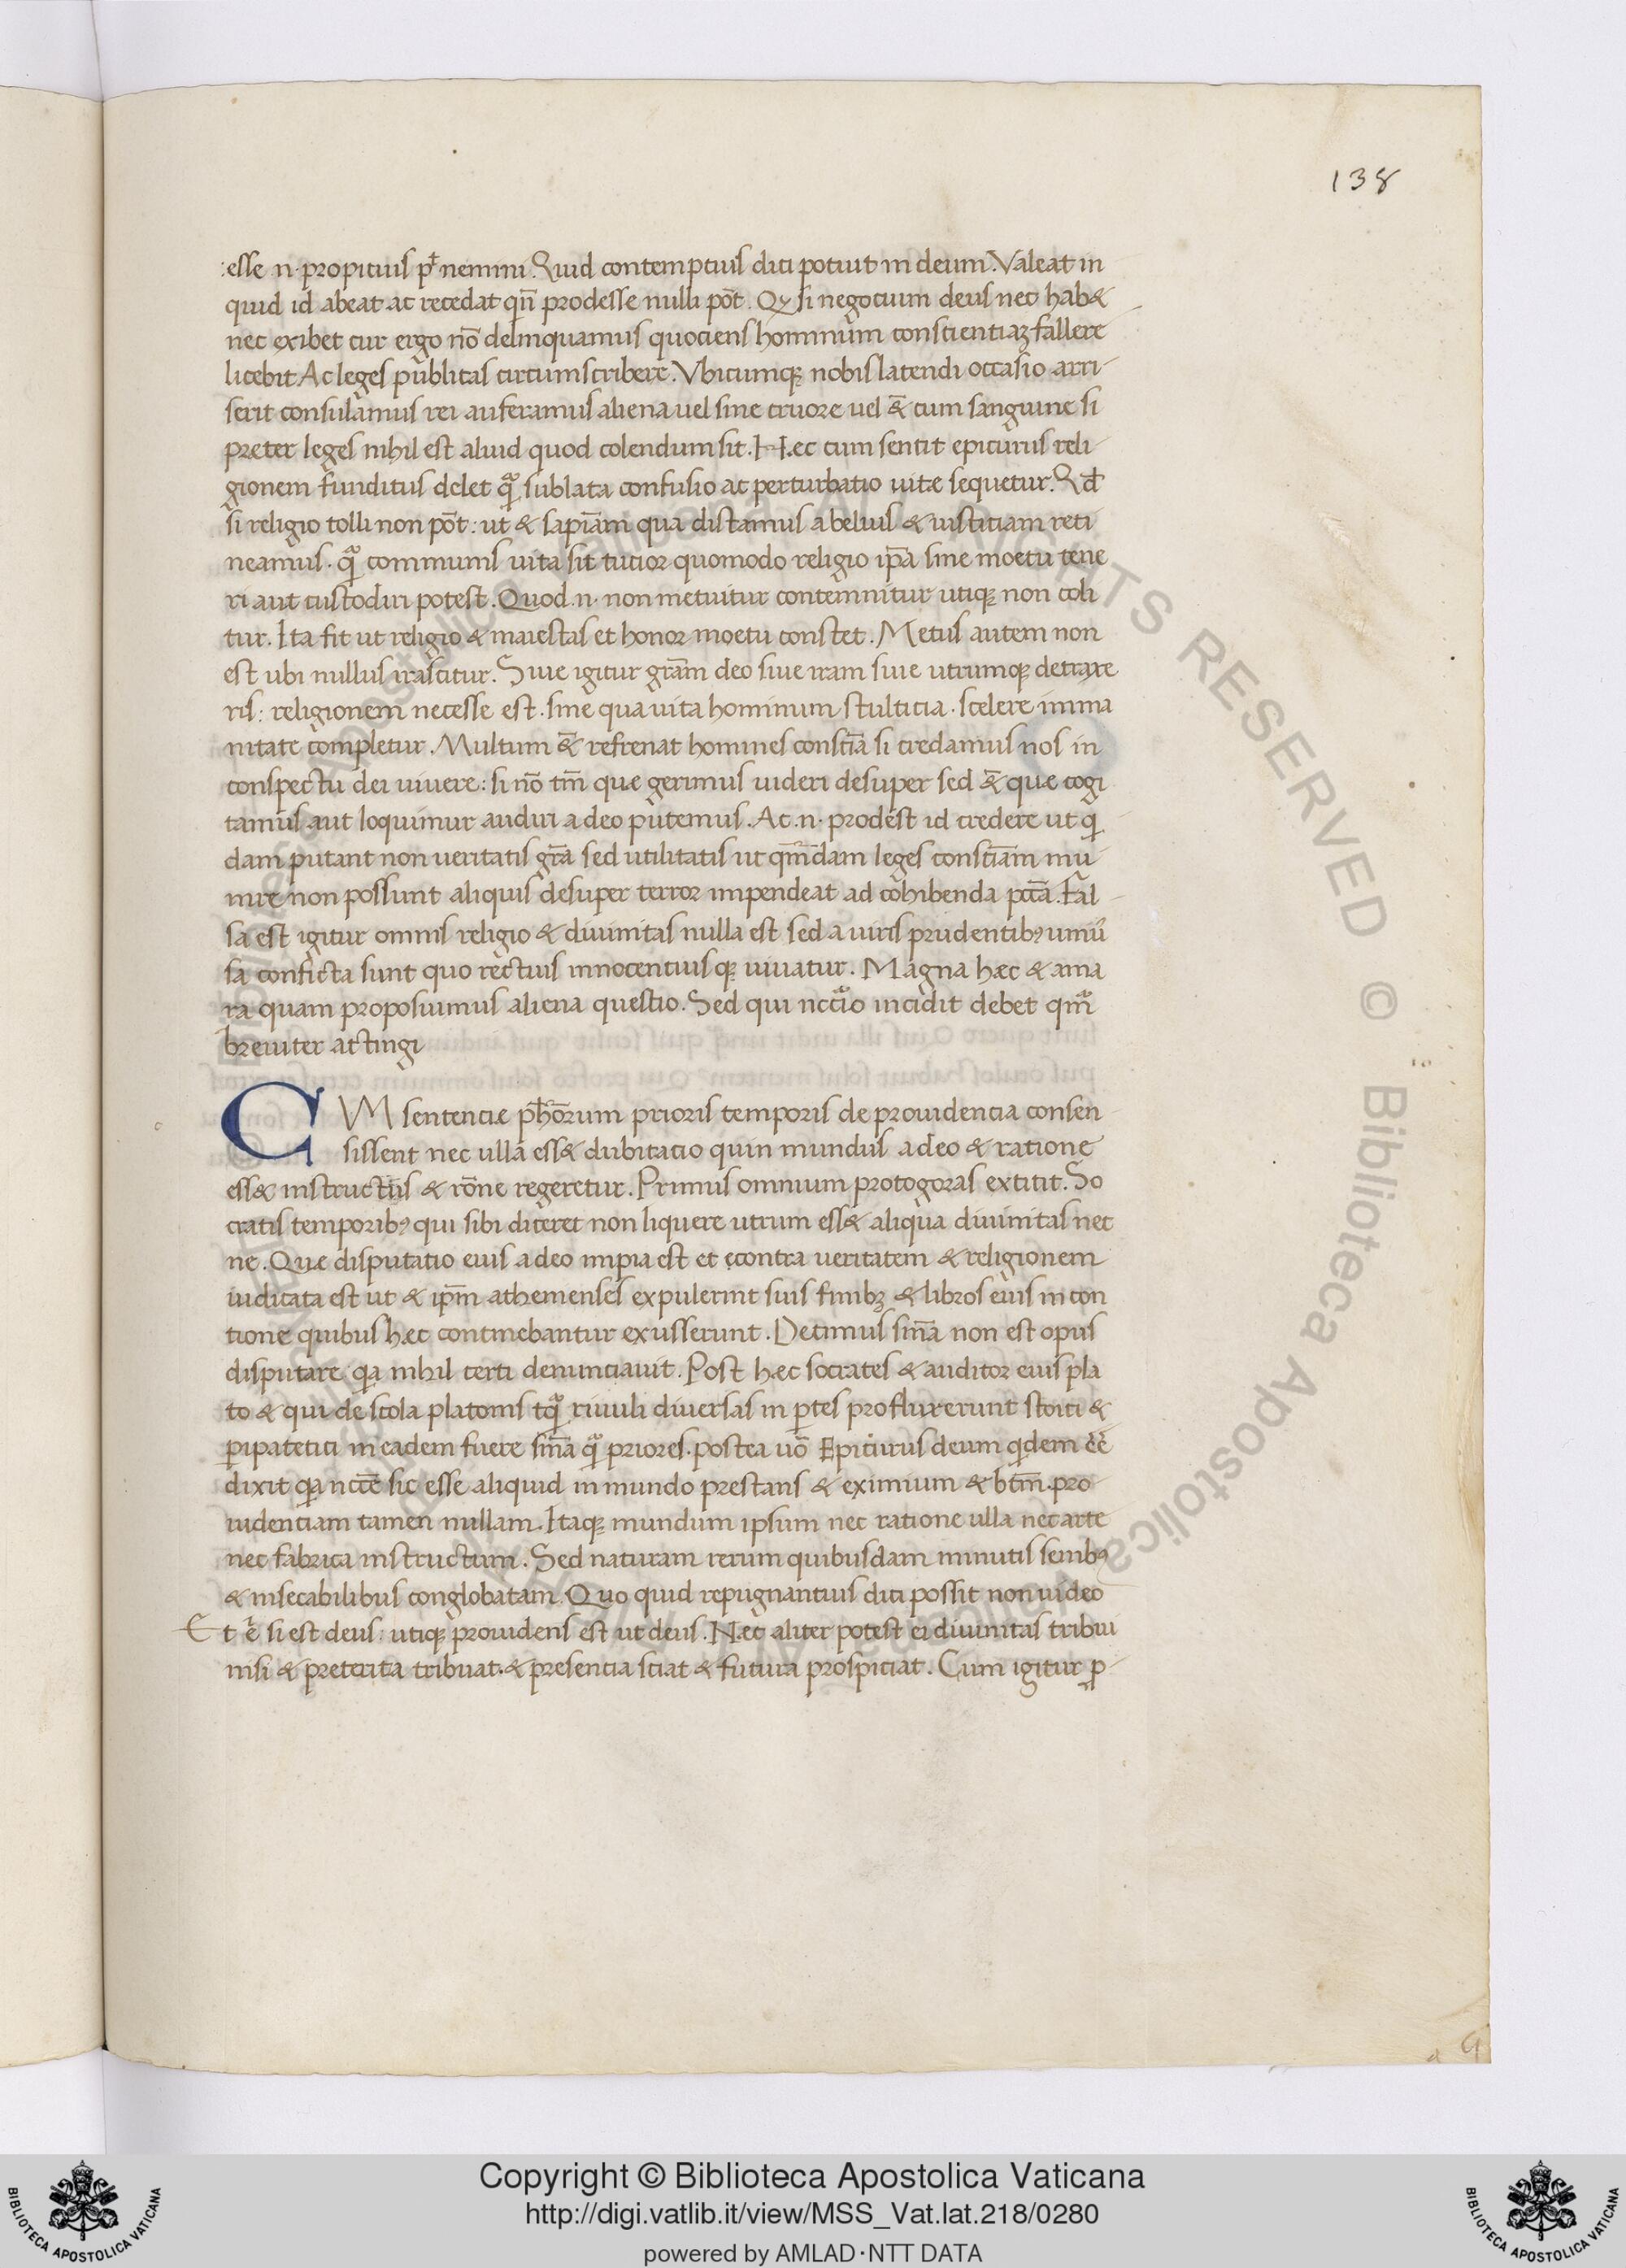 138
:esse .n. propicius pt̄ nemini. Quid contemptius dici potiut in deum. Valeat in
quid id abeat ac recedat qn̄ prodesse nulli pōt. Qꝫ si negocium deus nec hab&
nec exibet cur ergo nō delinquamus quociens hominum conscientiaꝫ fallere
licebit Ac leges publicas circumscribere. Vbicumqꝫ nobis latendi occasio arri-
serit consulamus rei auferamus aliena uel sine cruore uel &̄ cum sanguine si
preter leges nihil est aluid quod colendum sit. Hec cum sentit epicurus reli-
gionem funditus delet qͣ sublata confusio ac perturbatio uitæ sequetur. Qd̄
si religio tolli non pōt: ut & sapiām qua distamus a beluis & iusticiam reti
neamus. qͣ communis uita sit tucior quomodo religio ip̄a sine moetu tene
ri aut custodiri potest. Quod .n. non metuitur contemnitur utiqꝫ non coli
tur. Ita fit ut religio & maiestas et honor moetu constet. Metus autem non
est ubi nullus irascitur. Siue igitur grām deo siue iram siue utrumqꝫ detraxe
ris: religionem necesse est. sine qua uita hominum stulticia. scelere imma
nitate completur. Multum &̄ refrenat homines consciā si credamus nos in
conspectu dei uiuere: si nō tm̄ que gerimus uideri desuper sed &̄ que cogi
tamus aut loquimur audiri a deo putemus. At .n. prodest id credere ut qi
dam putant non ueritatis grā sed utilitatis ut qm̄dam leges consciām mu-
nire non possunt aliquis desuper terror impendeat ad cohibenda pccā. Fal-
sa est igitur omnis religio & diuinitas nulla est sed a uiris prudentibꝰ uniū
sa conficta sunt quo rectius innocentius qꝫ uiuatur. Magna hæc & a ma
ra quam proposiumus aliena questio. Sed qui nccīo incidit debet qm̄
breuiter attingi
CVM sentenciæ ph̄orum prioris temporis de prouidencia consen-
sissent nec ulla ess& dubitatio quin mundus a deo & ratione
ess& instructus & rōne regeretur. Primus omnium protogoras extitit. So
cratis temporibꝰ qui sibi diceret non liquere utrum ess& aliqua diuinitas nec
ne. Quæ disputatio eius a deo impia est et econtra ueritatem & religionem
iudicata est ut & ip̄m athenienses expulerint suis finibꝫ & libros eius in con
tione quibus hæc continebantur exusserunt. De cuius sn̄ia non est opus
disputare qa nihil certi denunciauit. Post hæc socrates & auditor eius pla
to & qui de scola platonis tqͣ riuuli diuersas in ꝑtes profluxerunt stoici &
ꝑipatetici in eadem fuere sn̄ia qͣ priores. postea uō Epicurus deum qidem ēē
dixit qa nccē sic esse aliquid in mundo prestans & eximium & btm̄. pro
uidenciam tamen nullam. Itaqꝫ mundum ipsum nec ratione ulla nec arte
nec fabrica instructum. Sed naturam rerum quibusdam minutis semibꝰ
& insecabilibus conglobatam. Quo quid repugnantius dici possit non uideo
Et ē si est deus: utiqꝫ prouidens est ut deus. Nec aliter potest ei diuinitas tribui
nisi & preterita tribuat. & presencia sciat & futura prospiciat. Cum igitur ꝓ-
Copyright © Biblioteca Apostolica Vaticana
http://digi.vatlib.it/view/MSS_Vat.lat.218/0280
powered by AMLAD·NTT DATA
BIBLIOTECA APOSTOLICA VATICANA
BIBLIOTECA APOSTOLICA VATICANA